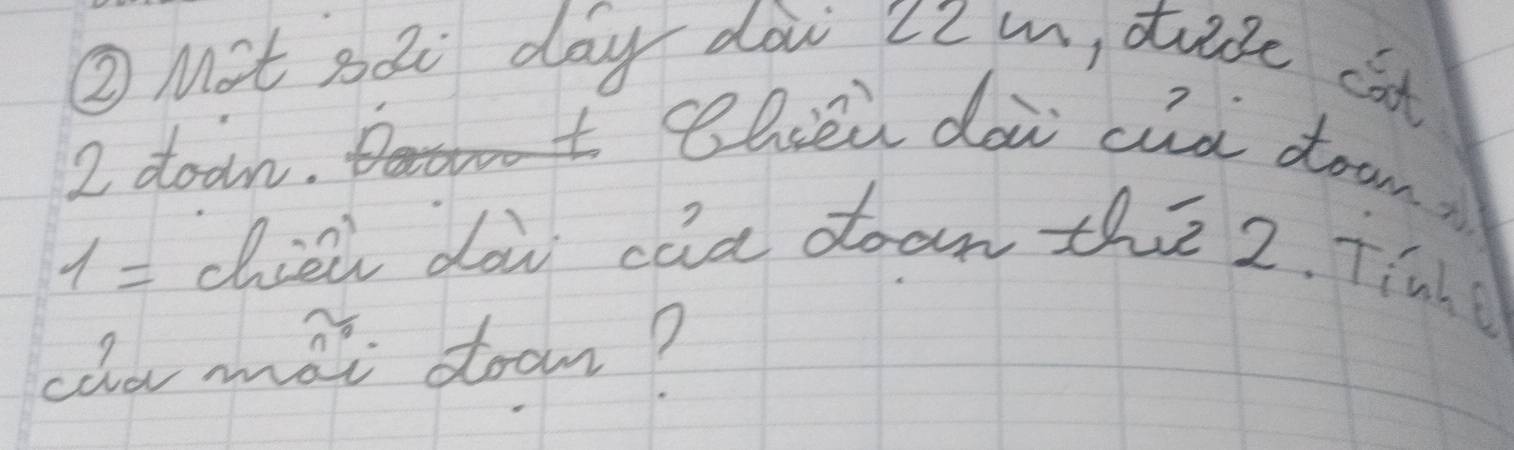 ② Một sợi dây dài 22 m, được cắt
2 đoạn. Chiều dài của đoạn
1 = chiều dài của đoạn thứ 2. Tính
của mỗi đoạn?